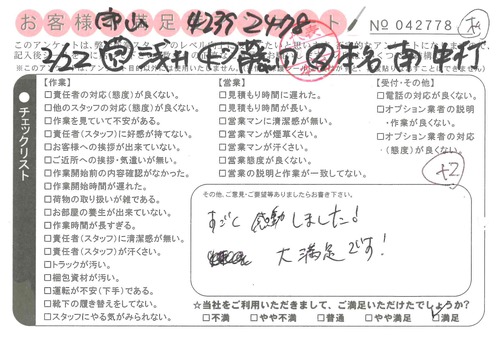 お客様 満足 ト
市山 4239 2478
No 042778
【作業】
□責任者の対応(態度)が良くない。
□他のスタッフの対応(態度)が良くない。
□作業を見ていて不安がある。
□責任者(スタッフ)に好感が持てない。
□お客様への挨拶が出来ていない。
□ご近所への挨拶・気遣いが無い。
□作業開始前の内容確認がなかった。
□作業開始時間が遅れた。
□荷物の取り扱いが雑である。
□お部屋の養生が出来ていない。
□作業時間が長すぎる。
□責任者(スタッフ)に清潔感が無い。
□責任者(スタッフ)が汗くさい。
□トラックが汚い。
□梱包資材が汚い。
□運転が不安(下手)である。
□靴下の履き替えをしてない。
□スタッフにやる気がみられない。
【営業】
□見積もり時間に遅れた。
□見積もり時間が長い。
□営業マンに清潔感が無い。
□営業マンが煙草くさい。
□営業マンが汗くさい。
□営業態度が良くない。
□営業の説明と作業が一致してない。
【受付・その他】
□電話の対応が良くない。
□オプション業者の説明
・作業が良くない。
□オプション業者の対応
・(態度)が良くない。
+2
●チェックリスト
その他、ご意見・ご要望等ありましたらお書き下さい。
すごく 感動しました!
大満足です!
☆当社をご利用いただきまして、ご満足いただけたでしょうか?
□不満 □やや不満 □普通 □やや満足 □満足